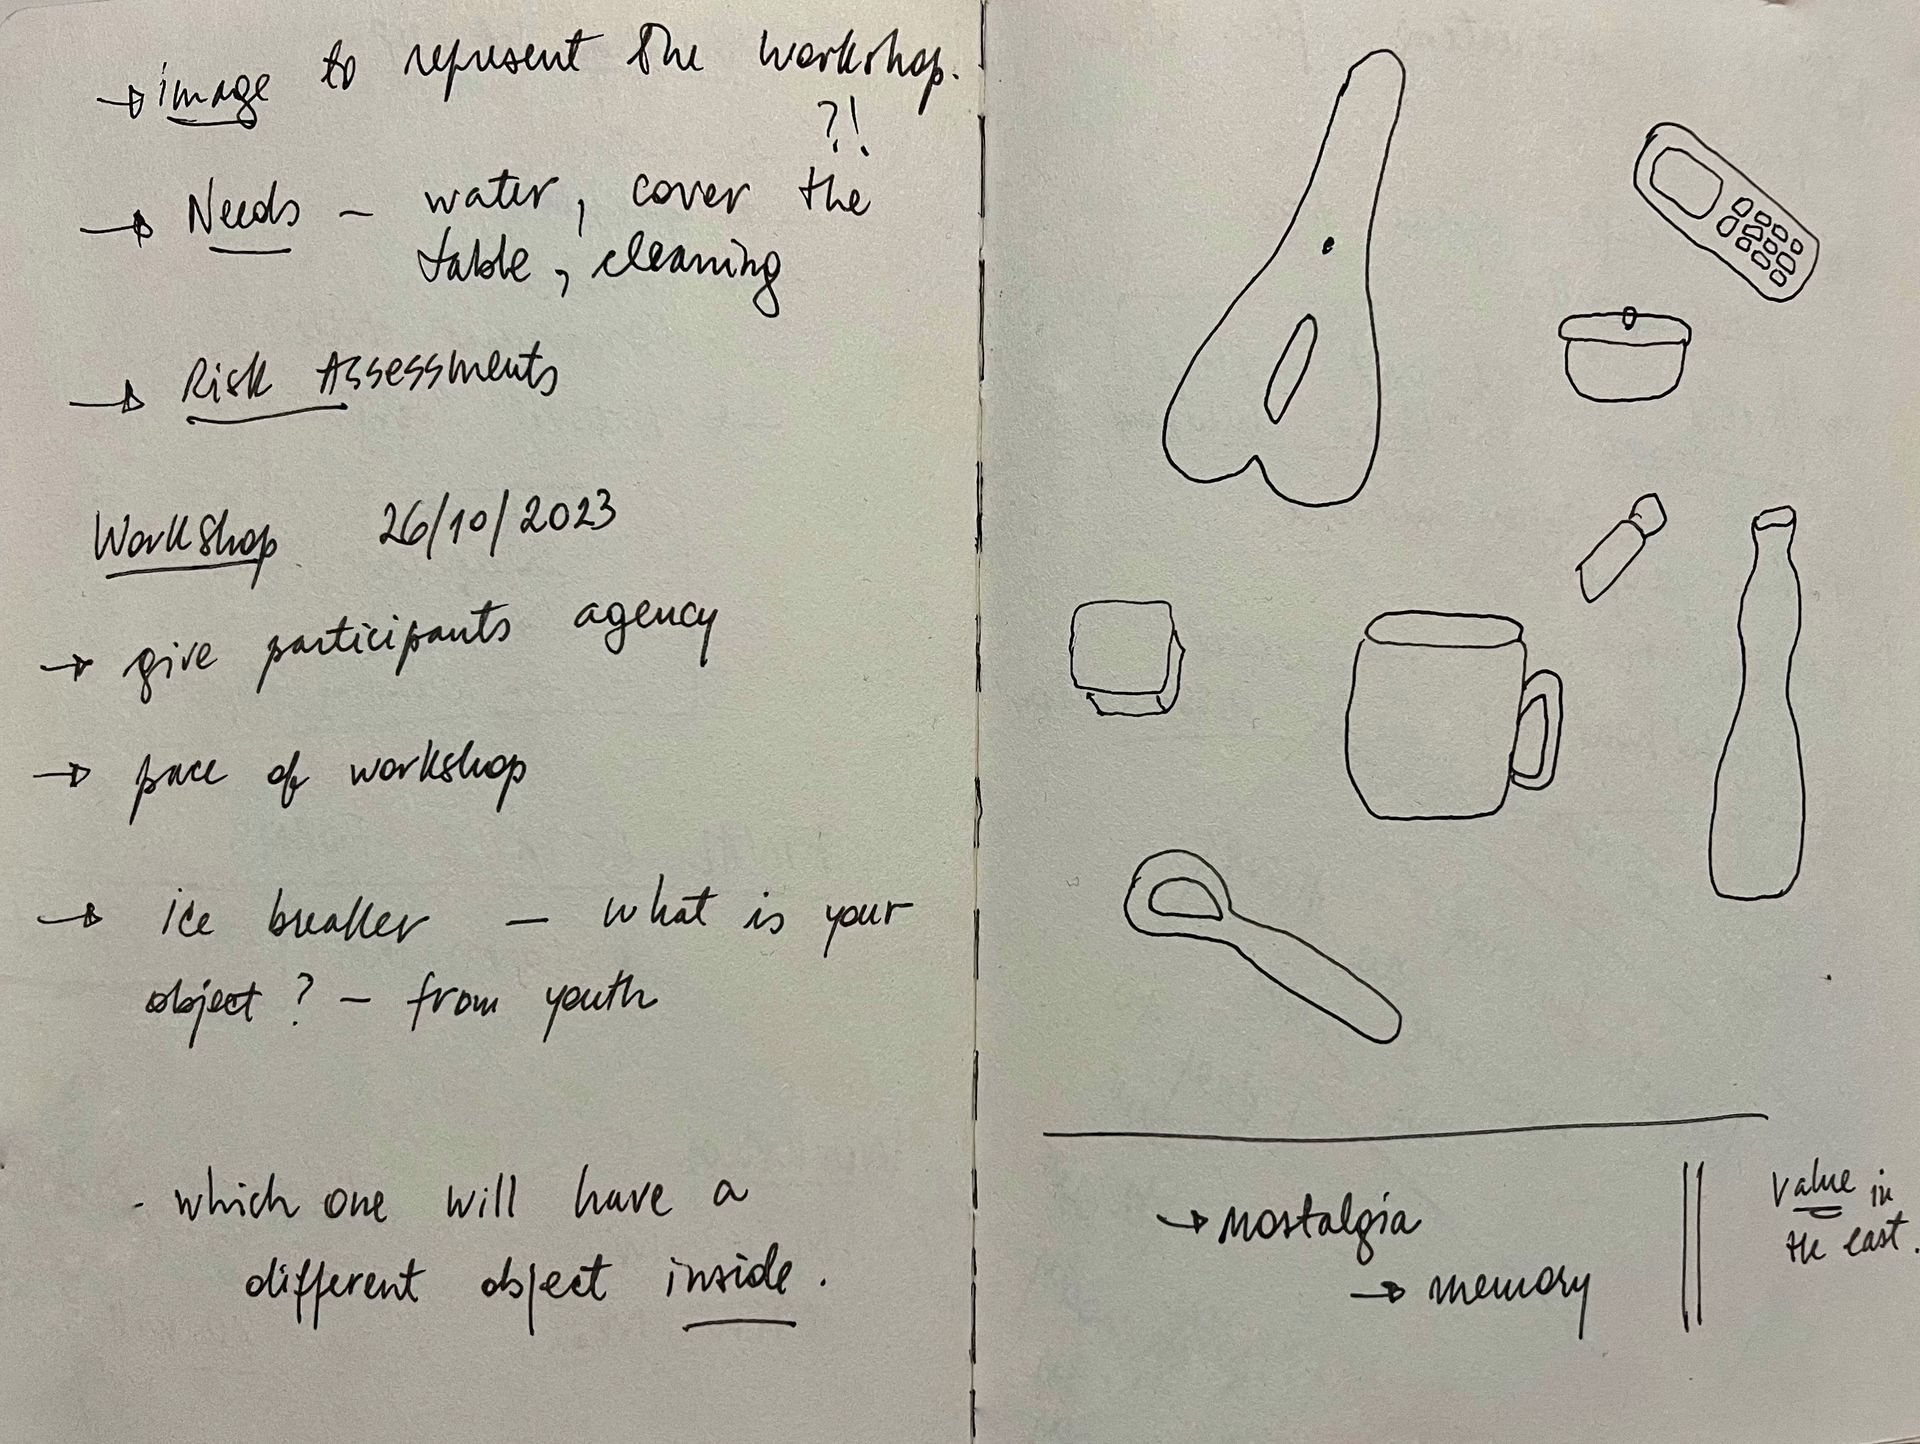 → image to represent the workshop.
?!
→ Needs – water, cover the
table, cleaning
→ Risk Assessments
Workshop 26/10/2023
→ give participants agency
→ pace of workshop
→ ice breaker – what is your
object? – from youth
- which one will have a
different object inside.
→ nostalgia
→ memory
value in
the east.